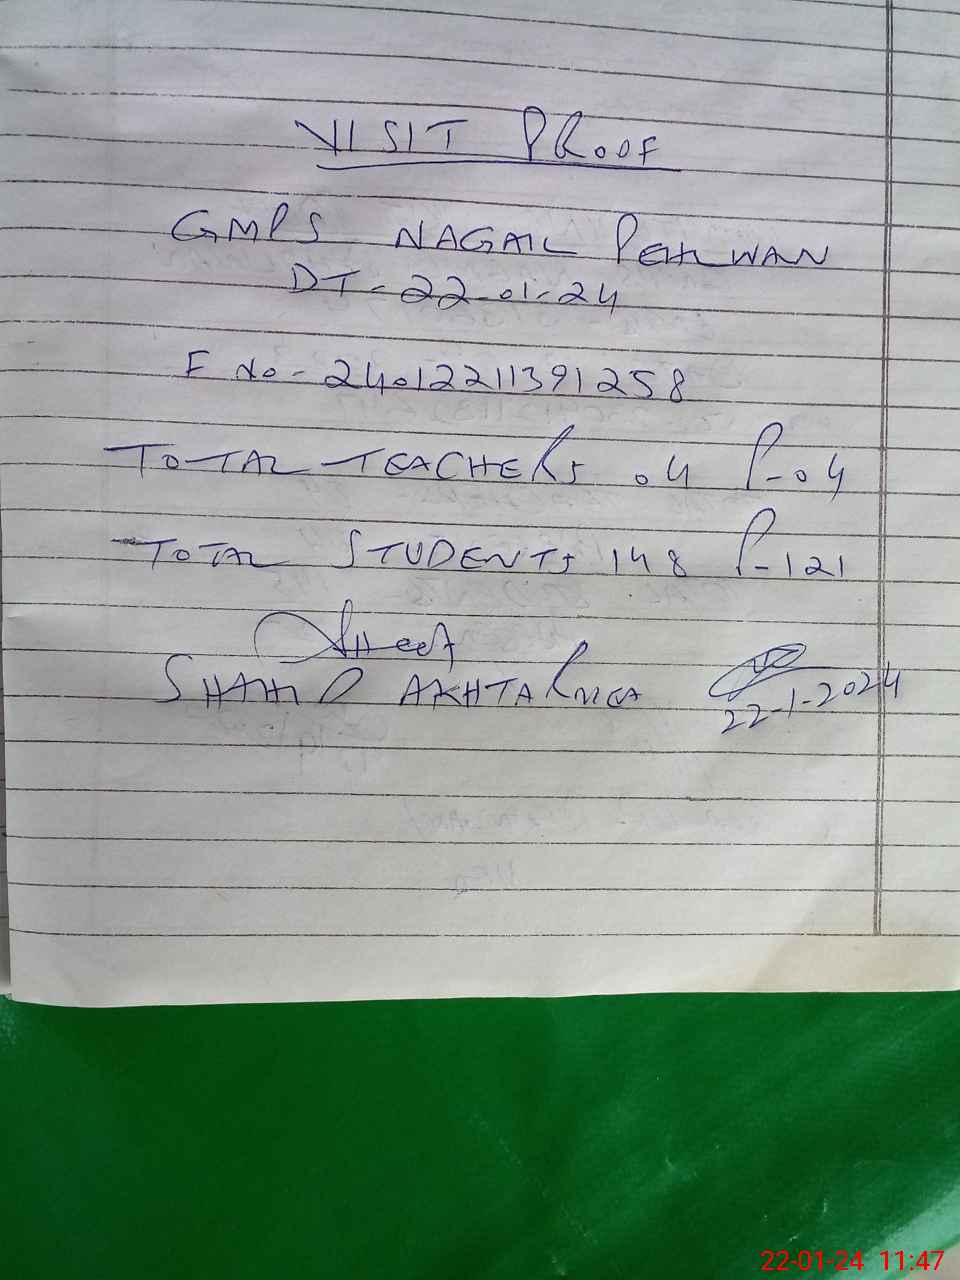 VISIT PROOF
GMPS NAGAL PEHLWAN
DT - 22-01-24
F No - 240122211391258
TOTAL TEACHERS 04 P-04
TOTAL STUDENTS 148 P-121
SHAHID AKHTAR
22-1-2024
22-01-24 11:47